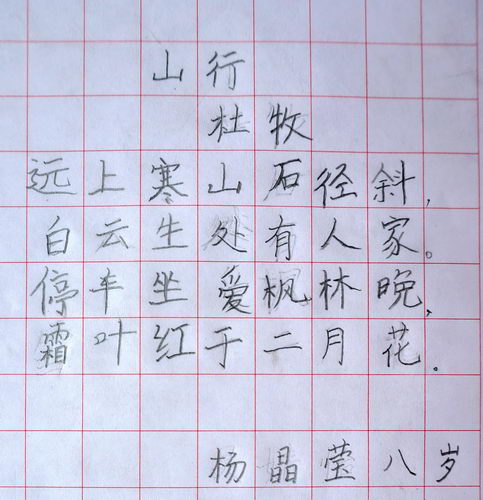 山行
杜牧
远上寒山石径斜,
白云生处有人家。
停车坐爱枫林晚,
霜叶红于二月花.
杨晶莹八岁